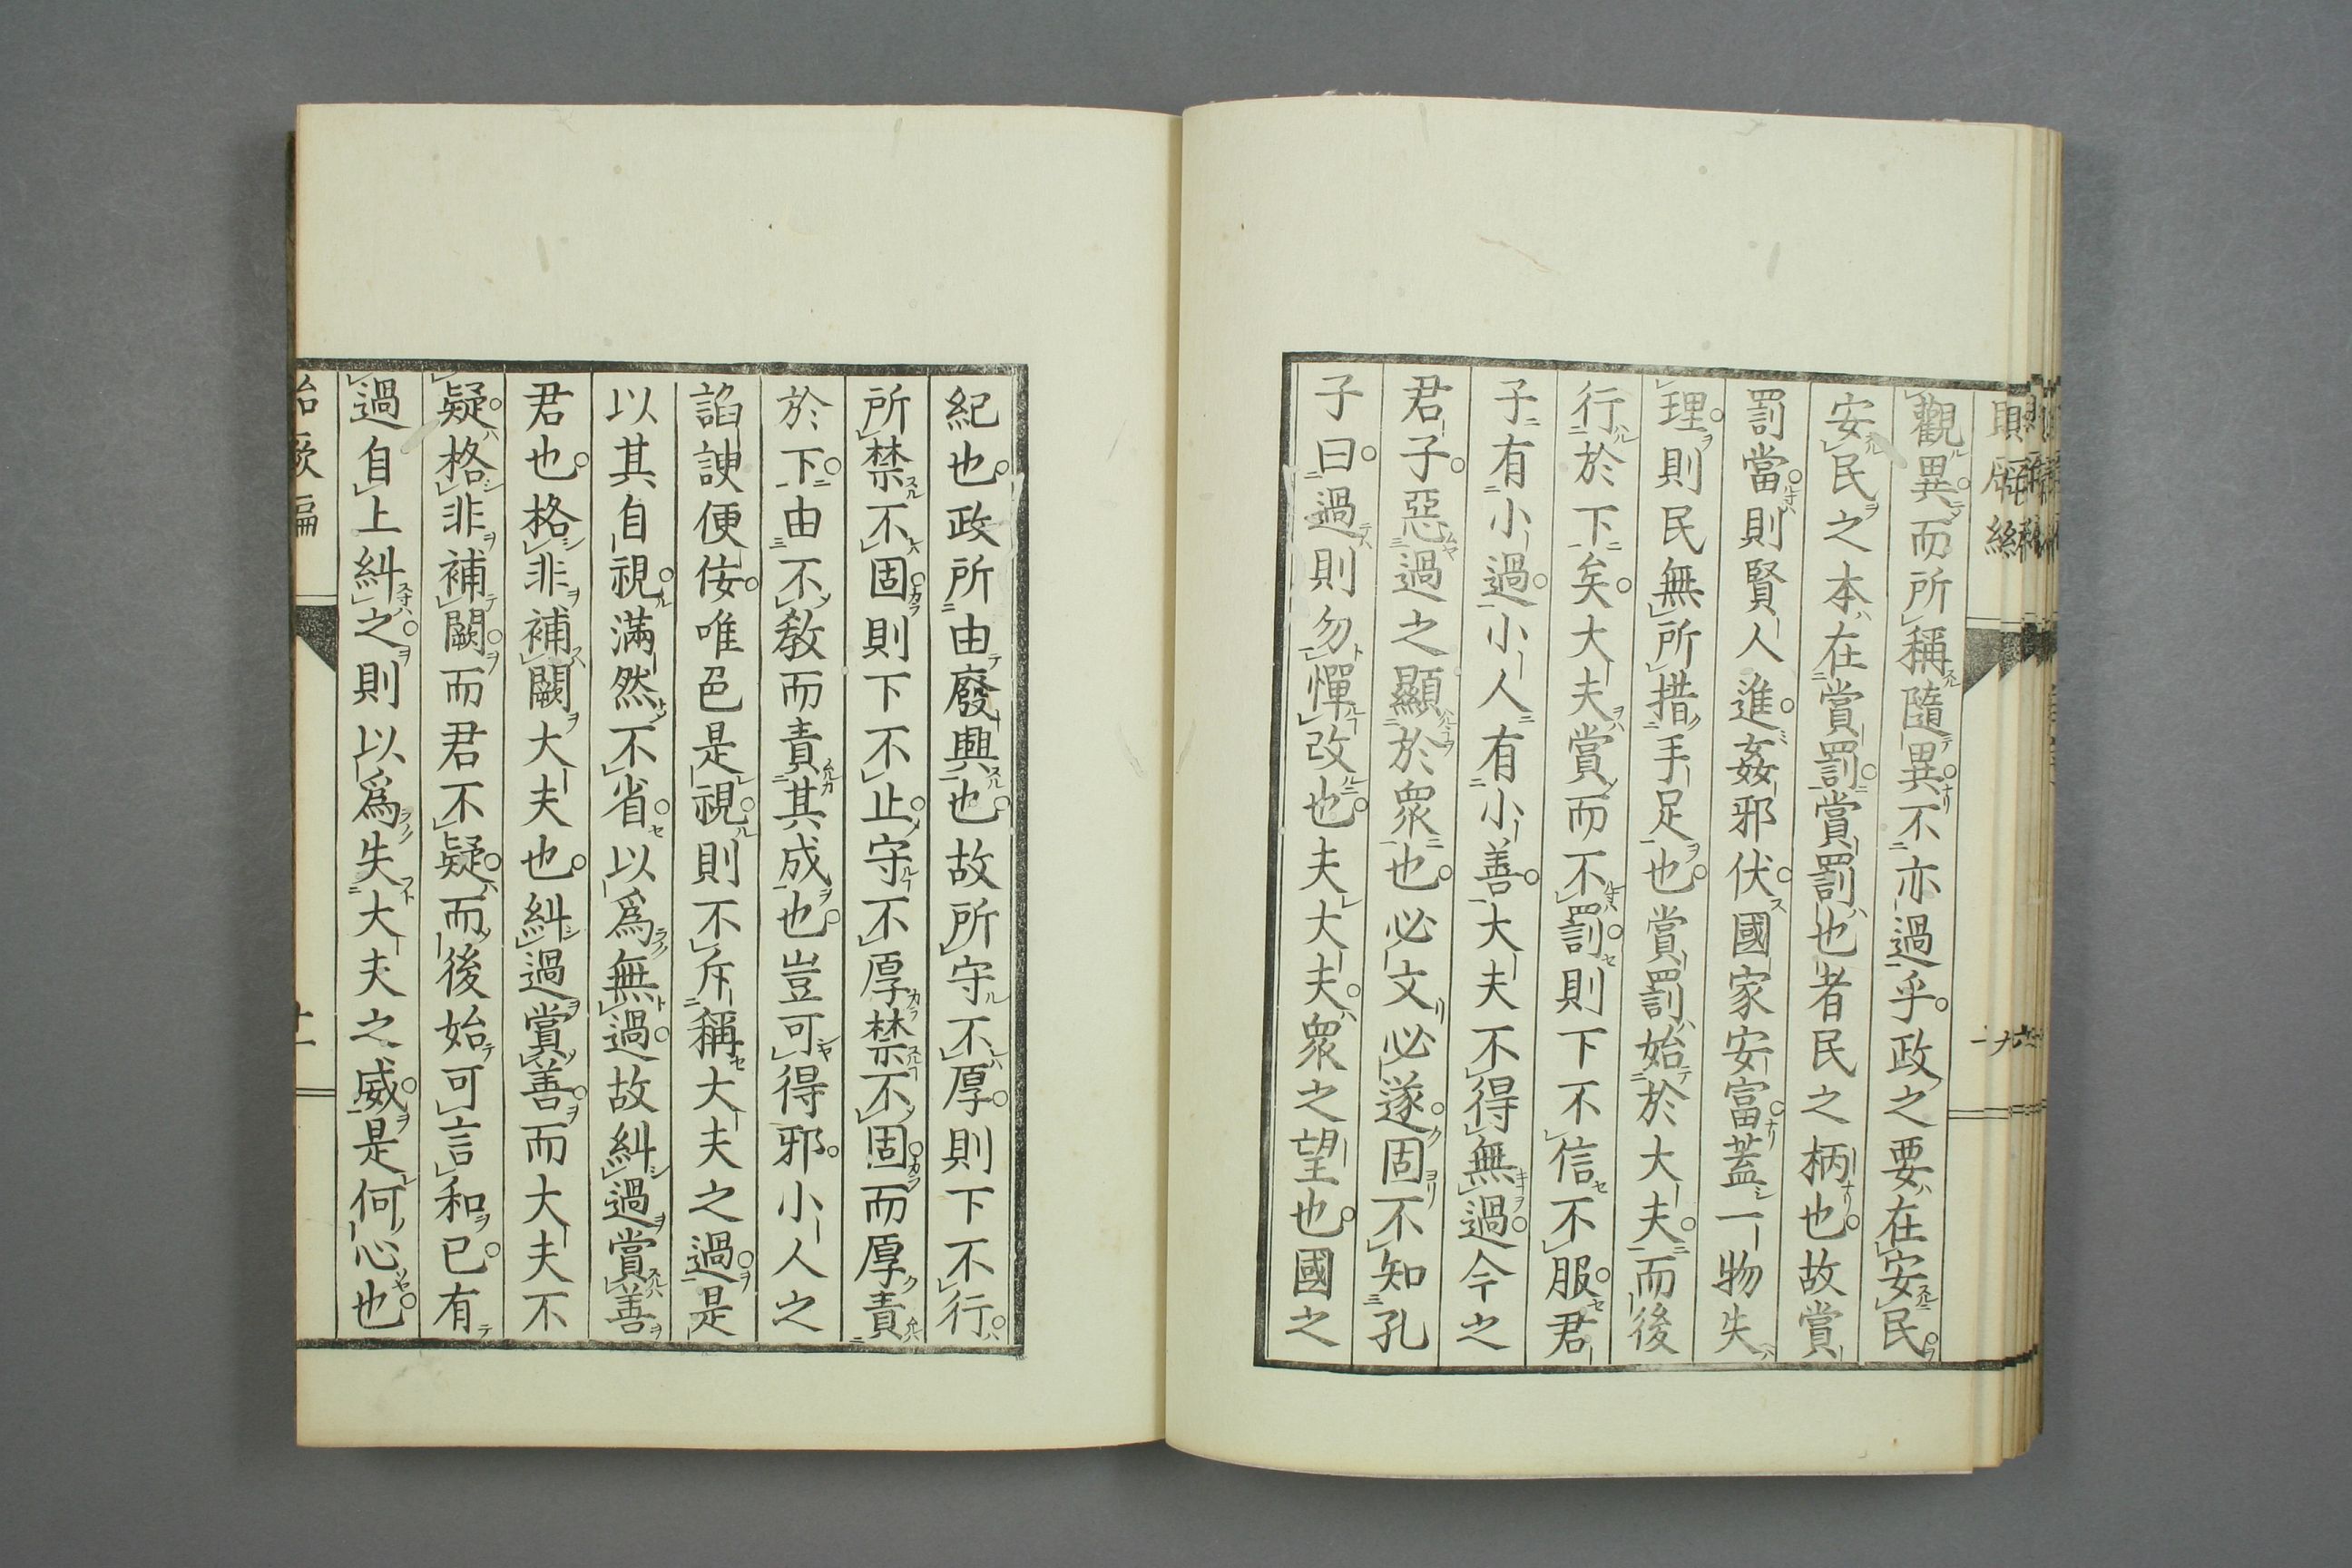 觀異而所稱隨異不亦過乎政之要在安民
安民之本在賞罰賞罰也者民之柄也故賞
罰當則賢人進姦邪伏國家安富蓋一物失
理則民無所措手足也賞罰始於大夫而後
行於下矣大夫賞而不罰則下不信不服君
子有小過小人有小善大夫不得無過今之
君子惡過之顯於衆也必文必遂固不知孔
子曰過則勿憚改也夫大夫衆之望也國之
紀也政所由廢興也故所守不厚則下不行
所禁不固則下不止守不厚禁不固而厚責
於下由不教而責其成也豈可得邪小人之
諂諛便佞唯邑是視則不斥稱大夫之過是
以其自視滿然不省以爲無過故糾過賞善
君也格非補闕大夫也糾過賞善而大夫不
疑格非補闕而君不疑而後始可言和已有
過自上糾之則以爲失大夫之威是何心也